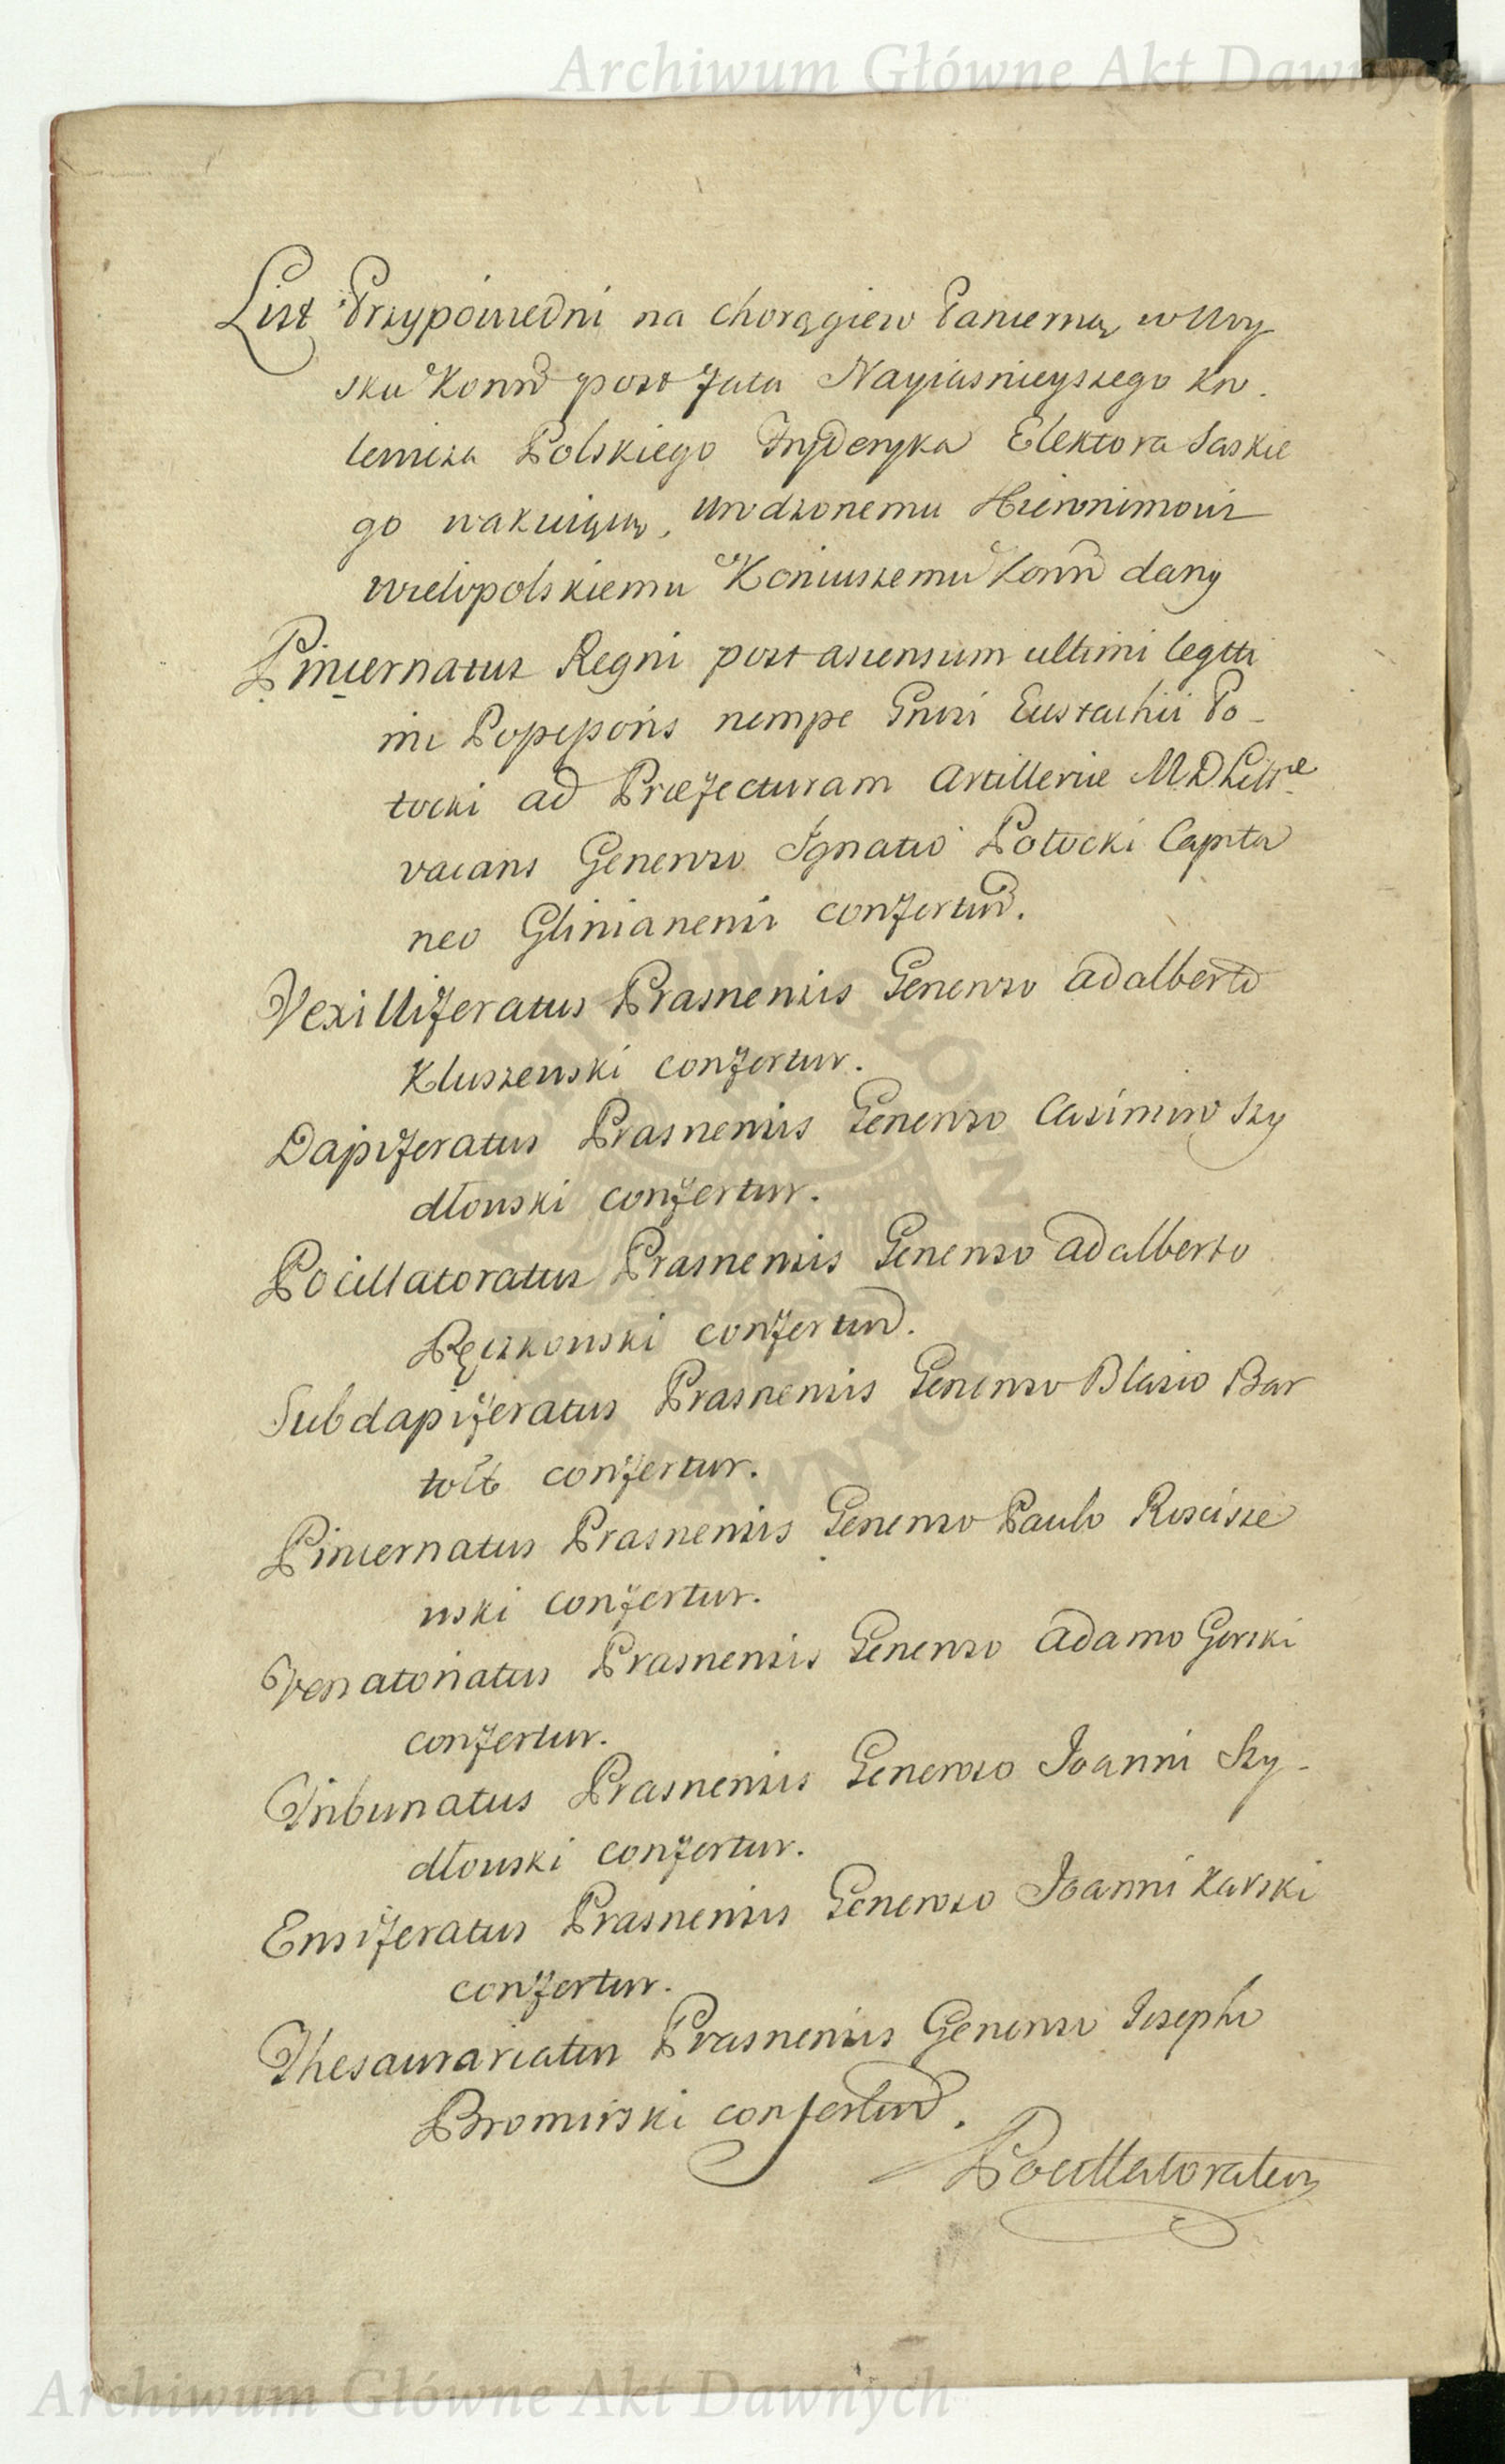 Archiwum Główne Akt Dawnych
List Przypowiedni na chorągiew Pancerną, w Woy
sku Koron post fata Nayiasnieyszego Kro.
lewicza Polskiego Fryderyka Elektora Saskie
go wakuiącą, Urodzonemu Hieronimowi
Wielopolskiemu Koniuszemu Koron dany
Pincernatus Regni post ascensum ultimi legitti
mi Possessoris nempe Gnrsi Eustachii Po-
tocki ad Præfecturam Artilleriæ M D Litt
vacans Generoso Ignatio Potocki Capita
neo Glinianensi confertur.
Vexilliferatus Prasnensis Generoso Adalberto
Kluszewski confertur.
Dapiferatus Prasnensis Generoso Casimiro Szy
dłowski confertur.
Pocillatoratus Prasnensis Generoso Adalberto
Ręczkowski confertur.
Subdapiferatus Prasnensis Generoso Blasio Bar
tołt confertur.
Pincernatus Prasnensis Generoso Paulo Roscisze
wski confertur.
Venatoriatus Prasnensis Generoso Adamo Gorski
confertur.
Tribunatus Prasnensis Generoso Joanni Szy-
dłowski confertur.
Ensiferatus Prasnensis Generoso Joanni Karski
confertur.
Thesaurariatus Prasnensis Generoso Josepho
Bromirski confertur.
Pocillatoratus
Archiwum Główne Akt Dawnych